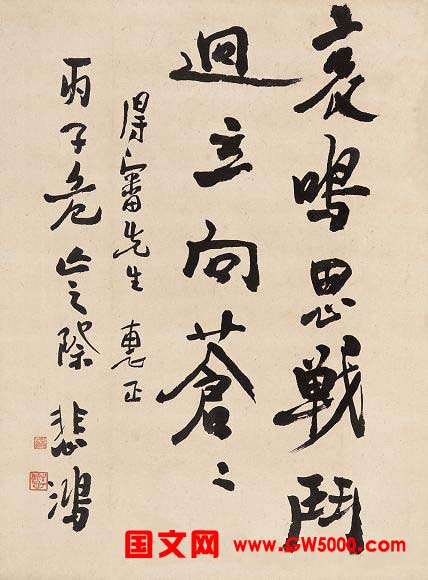 哀鳴思戦鬥
逈立向蒼〻
得審先生 惠正
丙子危亡之際 悲鴻
国文网 www.GW5000.com